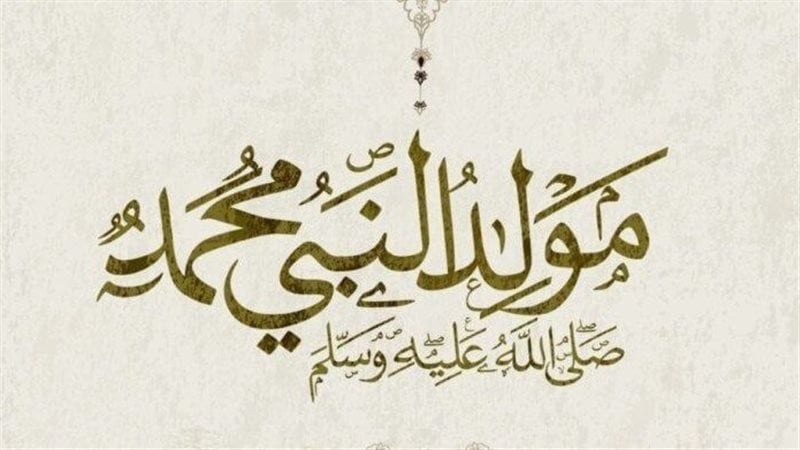 مَوْلِدُ النَّبِي مُحَمَّد
صَلَّى اللَّهُ عَلَيْهِ وَسَلَّمَ